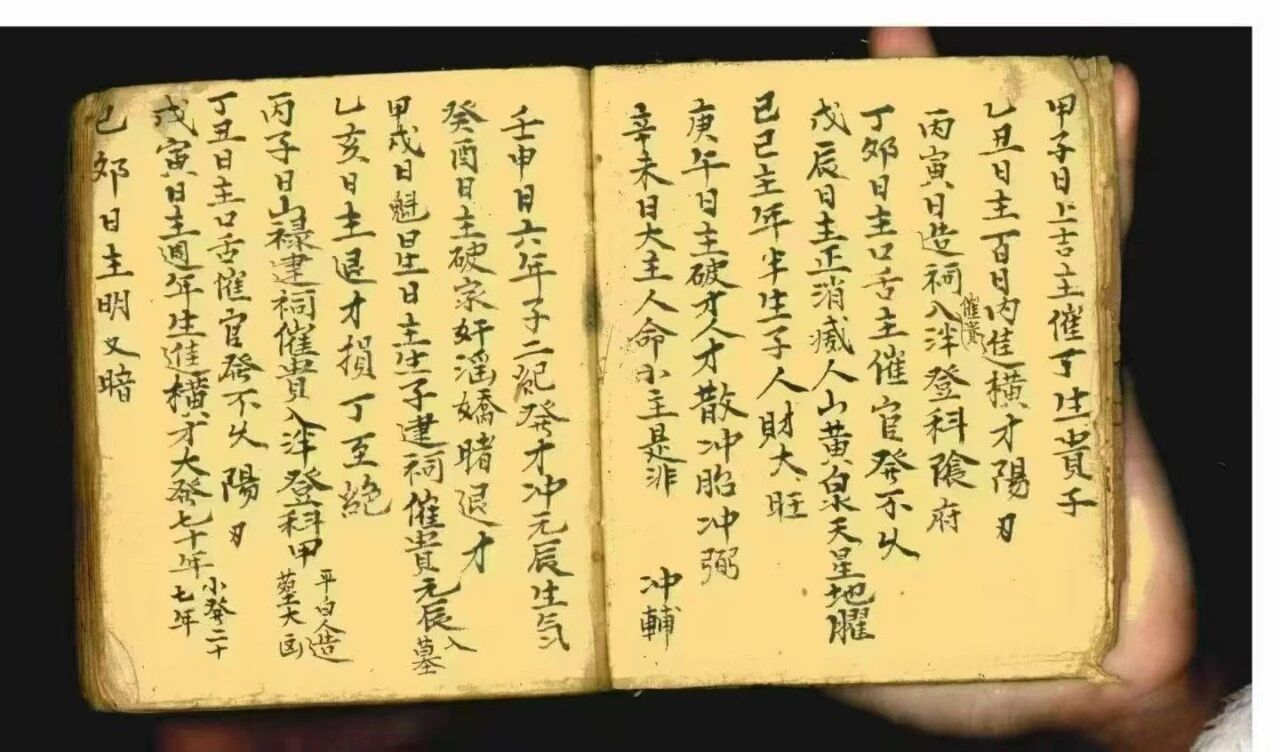 甲子日上吉主催丁生貴子
乙丑日主百日内進橫才陽刃
丙寅日造祠入泮催貴登科陰府
丁夘日主口舌主催官發不久
戊辰日主正消滅人山黄泉天星地曜
己巳主年半生子人財大旺
庚午日主破才人才散冲胎冲弼
辛未日大主人命小主是非 冲輔
壬申日六年子二紀發才冲元辰生气
癸酉日主破家奸滛嬌賭退才
甲戌日魁日生日主生子建祠催貴元辰入墓
乙亥日主退才損丁至絕
丙子日山祿建祠催貴入泮登科甲 平白人造塟大凶
丁丑日主口舌催官發不久陽刃
戊寅日主週年生進橫才大發七十年小發二十七年
己夘日主明又暗